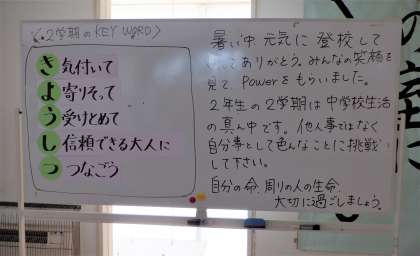 〈2学期のKEY WORD〉
き 気付いて
よ 寄りそって
う 受けとめて
し 信頼できる大人に
つ つなごう
暑い中 元気に 登校して
ありがとう。みんなの笑顔を
見て、Powerをもらいました。
2年生の2学期は中学校生活
の真ん中です。他人事ではなく
自分事として色んなことに挑戦し
て下さい。
自分の命、周りの人の生命、
大切に過ごしましょう。
室に